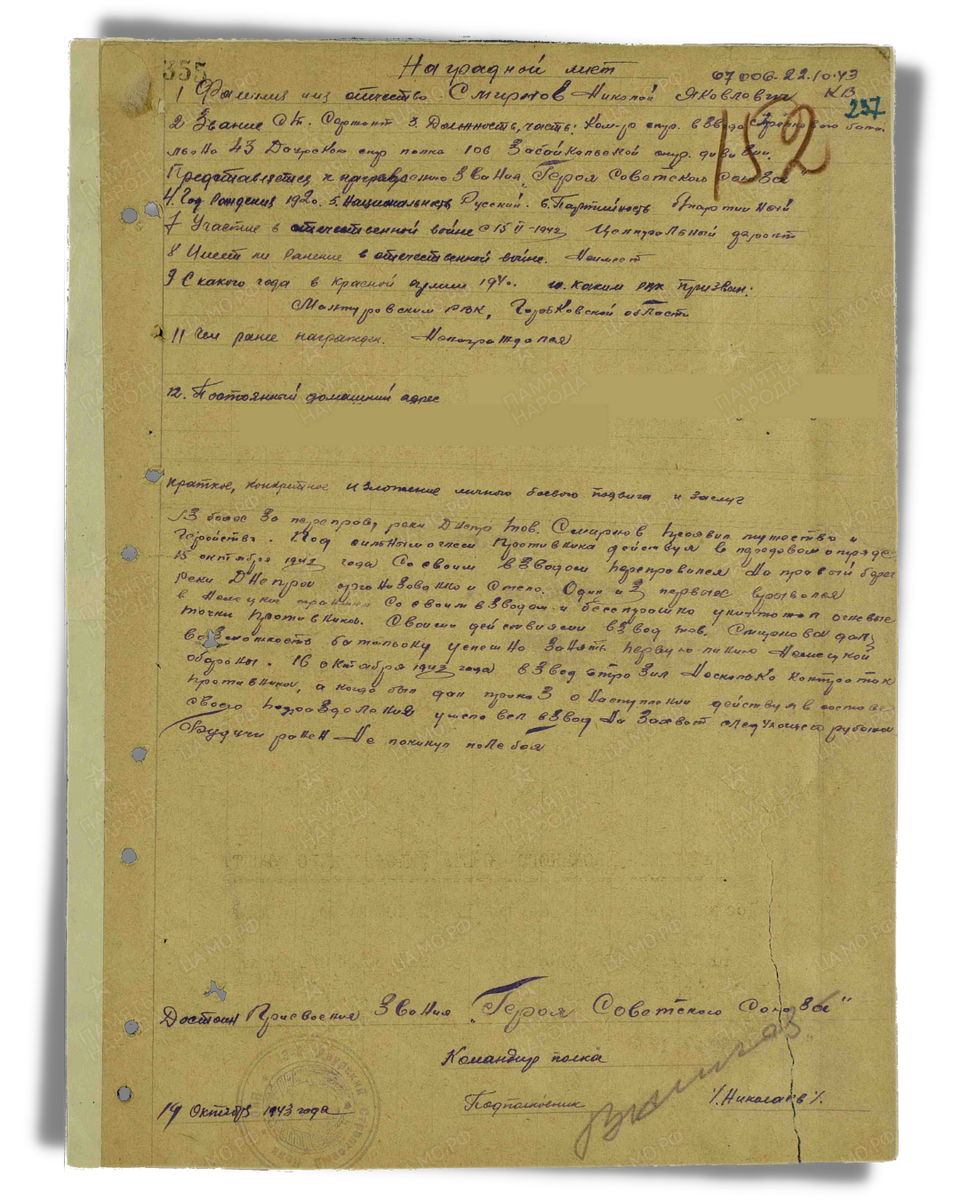 355
Наградной лист
67 006. 22.10.43
КВ
237
152
1 Фамилия имя отчество Смирнов Николай Яковлевич
2 Звание Ст. Сержант 3. Должность, часть: Ком-р стр. взвода стрелкового бата-
льона 43 Даурского стр полка 106 Забайкальской стр. дивизии.
Представляется к награждению звания "Героя Советского Союза"
4. Год рождения 1920. 5. Национальность Русский. 6. Партийность беспартийный
7 Участие в отечественной войне с 15 II-1943 Центральный фронт
8 Имеет ли ранение в отечественной войне. Не имеет
9 С какого года в красной армии 1940. 10. каким рвк призван:
Мантуровским РВК, Горьковской области
11 Чем ранее награжден. Не награждался
12. Постоянный домашний адрес
Краткое, конкретное изложение личного боевого подвига и заслуг
В боях за переправу реки Днепр тов. Смирнов проявил мужество и
геройство. Под сильным огнем противника действуя в передовом отряде
15 октября 1943 года со своим взводом переправился на правый берег
реки Днепра организованно и смело. Один из первых ворвался
в немецкие траншеи со своим взводом и бесстрашно уничтожал огневые
точки противника. Своими действиями взвод тов. Смирнова дал
возможность батальону успешно занять первую линию немецкой
обороны. 16 октября 1943 года взвод отразил несколько контратак
противника, а когда был дан приказ о наступлении действуя в составе
своего подразделения умело вел взвод на захват следующего рубежа.
Будучи ранен не покинул поле боя
Достоин присвоения звания "Героя Советского Союза"
Командир полка
Подполковник /Николаев/.
19 Октября 1943 года
ПАМЯТЬ НАРОДА
ЦАМО.РФ